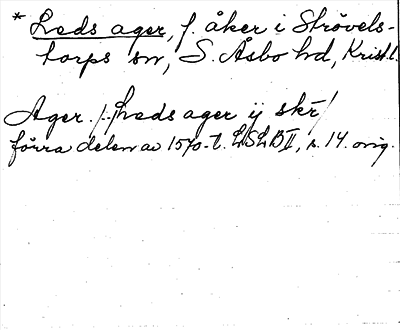 * Leds ager, f. åker i Strövels-
torps sn, S. Åsbo hd, Krist. l.
Ager. /. Leds ager ij skr̄ /
förra delen av 1570-t. LSLB II, s. 14. orig.